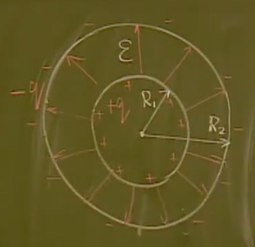 ε
-q
+q
R₁
R₂